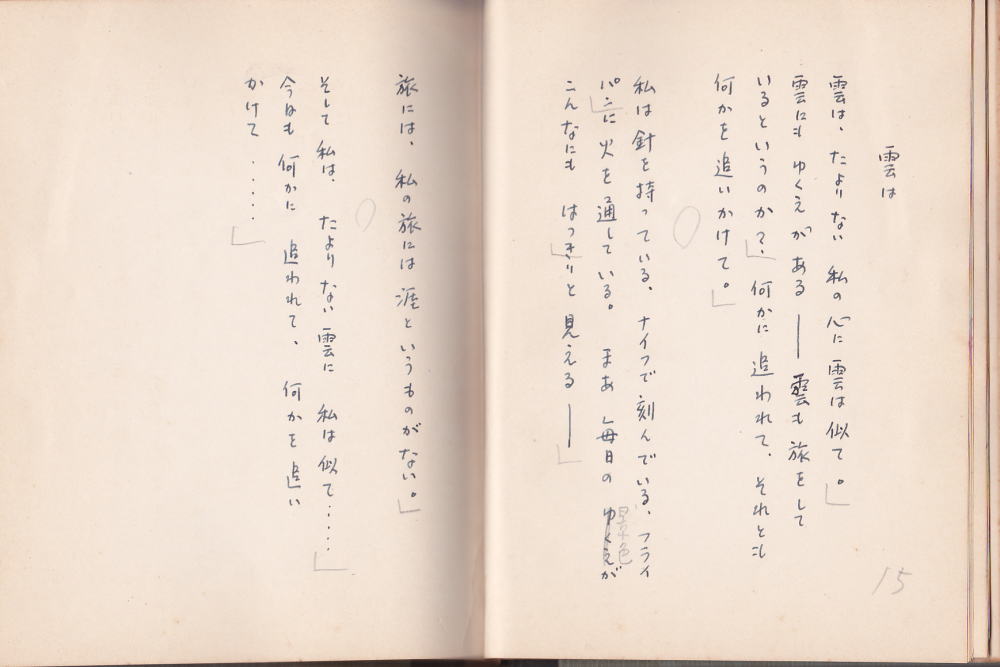 雲は
雲は、たよりない 私の心に 雲は似て。
雲にも ゆくえがある ── 雲も 旅をして
いるというのか？ 何かに 追われて、それとも
何かを 追いかけて。
私は 針を 持っている、ナイフで 刻んでいる、フライ
パンに 火を 通している。 まあ 毎日の ゆくえが
景色
こんなにも はっきりと 見える ──
15
旅には、 私の旅には 涯というものがない。
そして 私は、 たよりない 雲に 私は 似て‥‥‥
今日も 何かに 追われて、 何かを 追い
かけて ‥‥‥